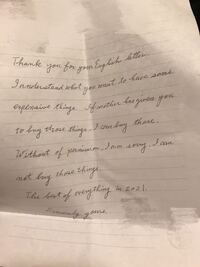 Thank you for your English letter.
I understand what you want to have some
expensive things. If mother has given you
to buy those things, I can buy them.
Without of permission, I am sorry. I can
not buy those things.
The best of everything in 2021.
Sincerely yours.